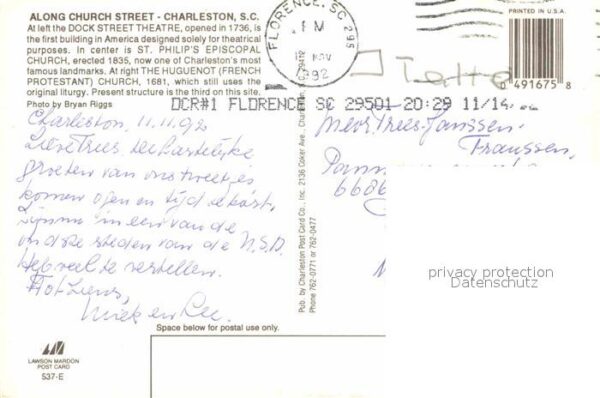 ALONG CHURCH STREET - CHARLESTON, S.C.
At left the DOCK STREET THEATRE, opened in 1736, is
the first building in America designed solely for theatrical
purposes. In center is ST. PHILIP'S EPISCOPAL
CHURCH, erected 1835, now one of Charleston's most
famous landmarks. At right THE HUGUENOT (FRENCH
PROTESTANT) CHURCH, 1681, which still uses the
original liturgy. Present structure is the third on this site.
Photo by Bryan Riggs
FLORENCE, SC 295
PM
NOV
1992
PRINTED IN U.S.A.
0 491675 8
DCR#1 FLORENCE SC 29501 20:29 11/14
Charleston, 11.11.92
Lieve Trees. de hartelijke
groeten van ons tweetjes
komen ogen en tijd te kort.
Zijn in een van de
oudste steden van de U.S.A.
Heb veel te vertellen.
liefs,
Miek en
Mevr. Trees-Janssen-
Franssen.
Pub. by Charleston Post Card Co., Inc. 2136 Coker Ave., Charleston, S.C. 29412
Phone 762-0771 or 762-0477
Space below for postal use only.
LAWSON MARDON
POST CARD
537-E
privacy protection
Datenschutz